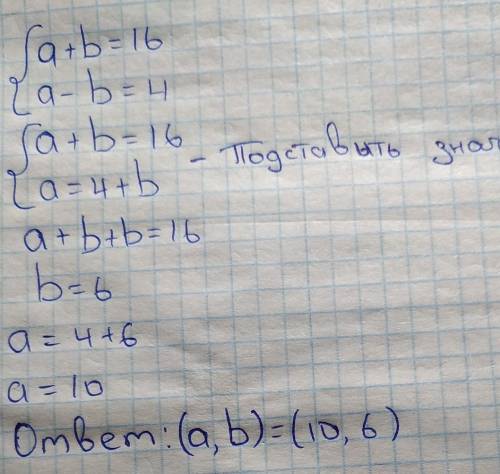 a+b=16
a-b=4
a+b=16
a=4+b - Подставыть
a+b+b=16
b=6
a=4+6
a=10
Ответ:(a,b)=(10,6)